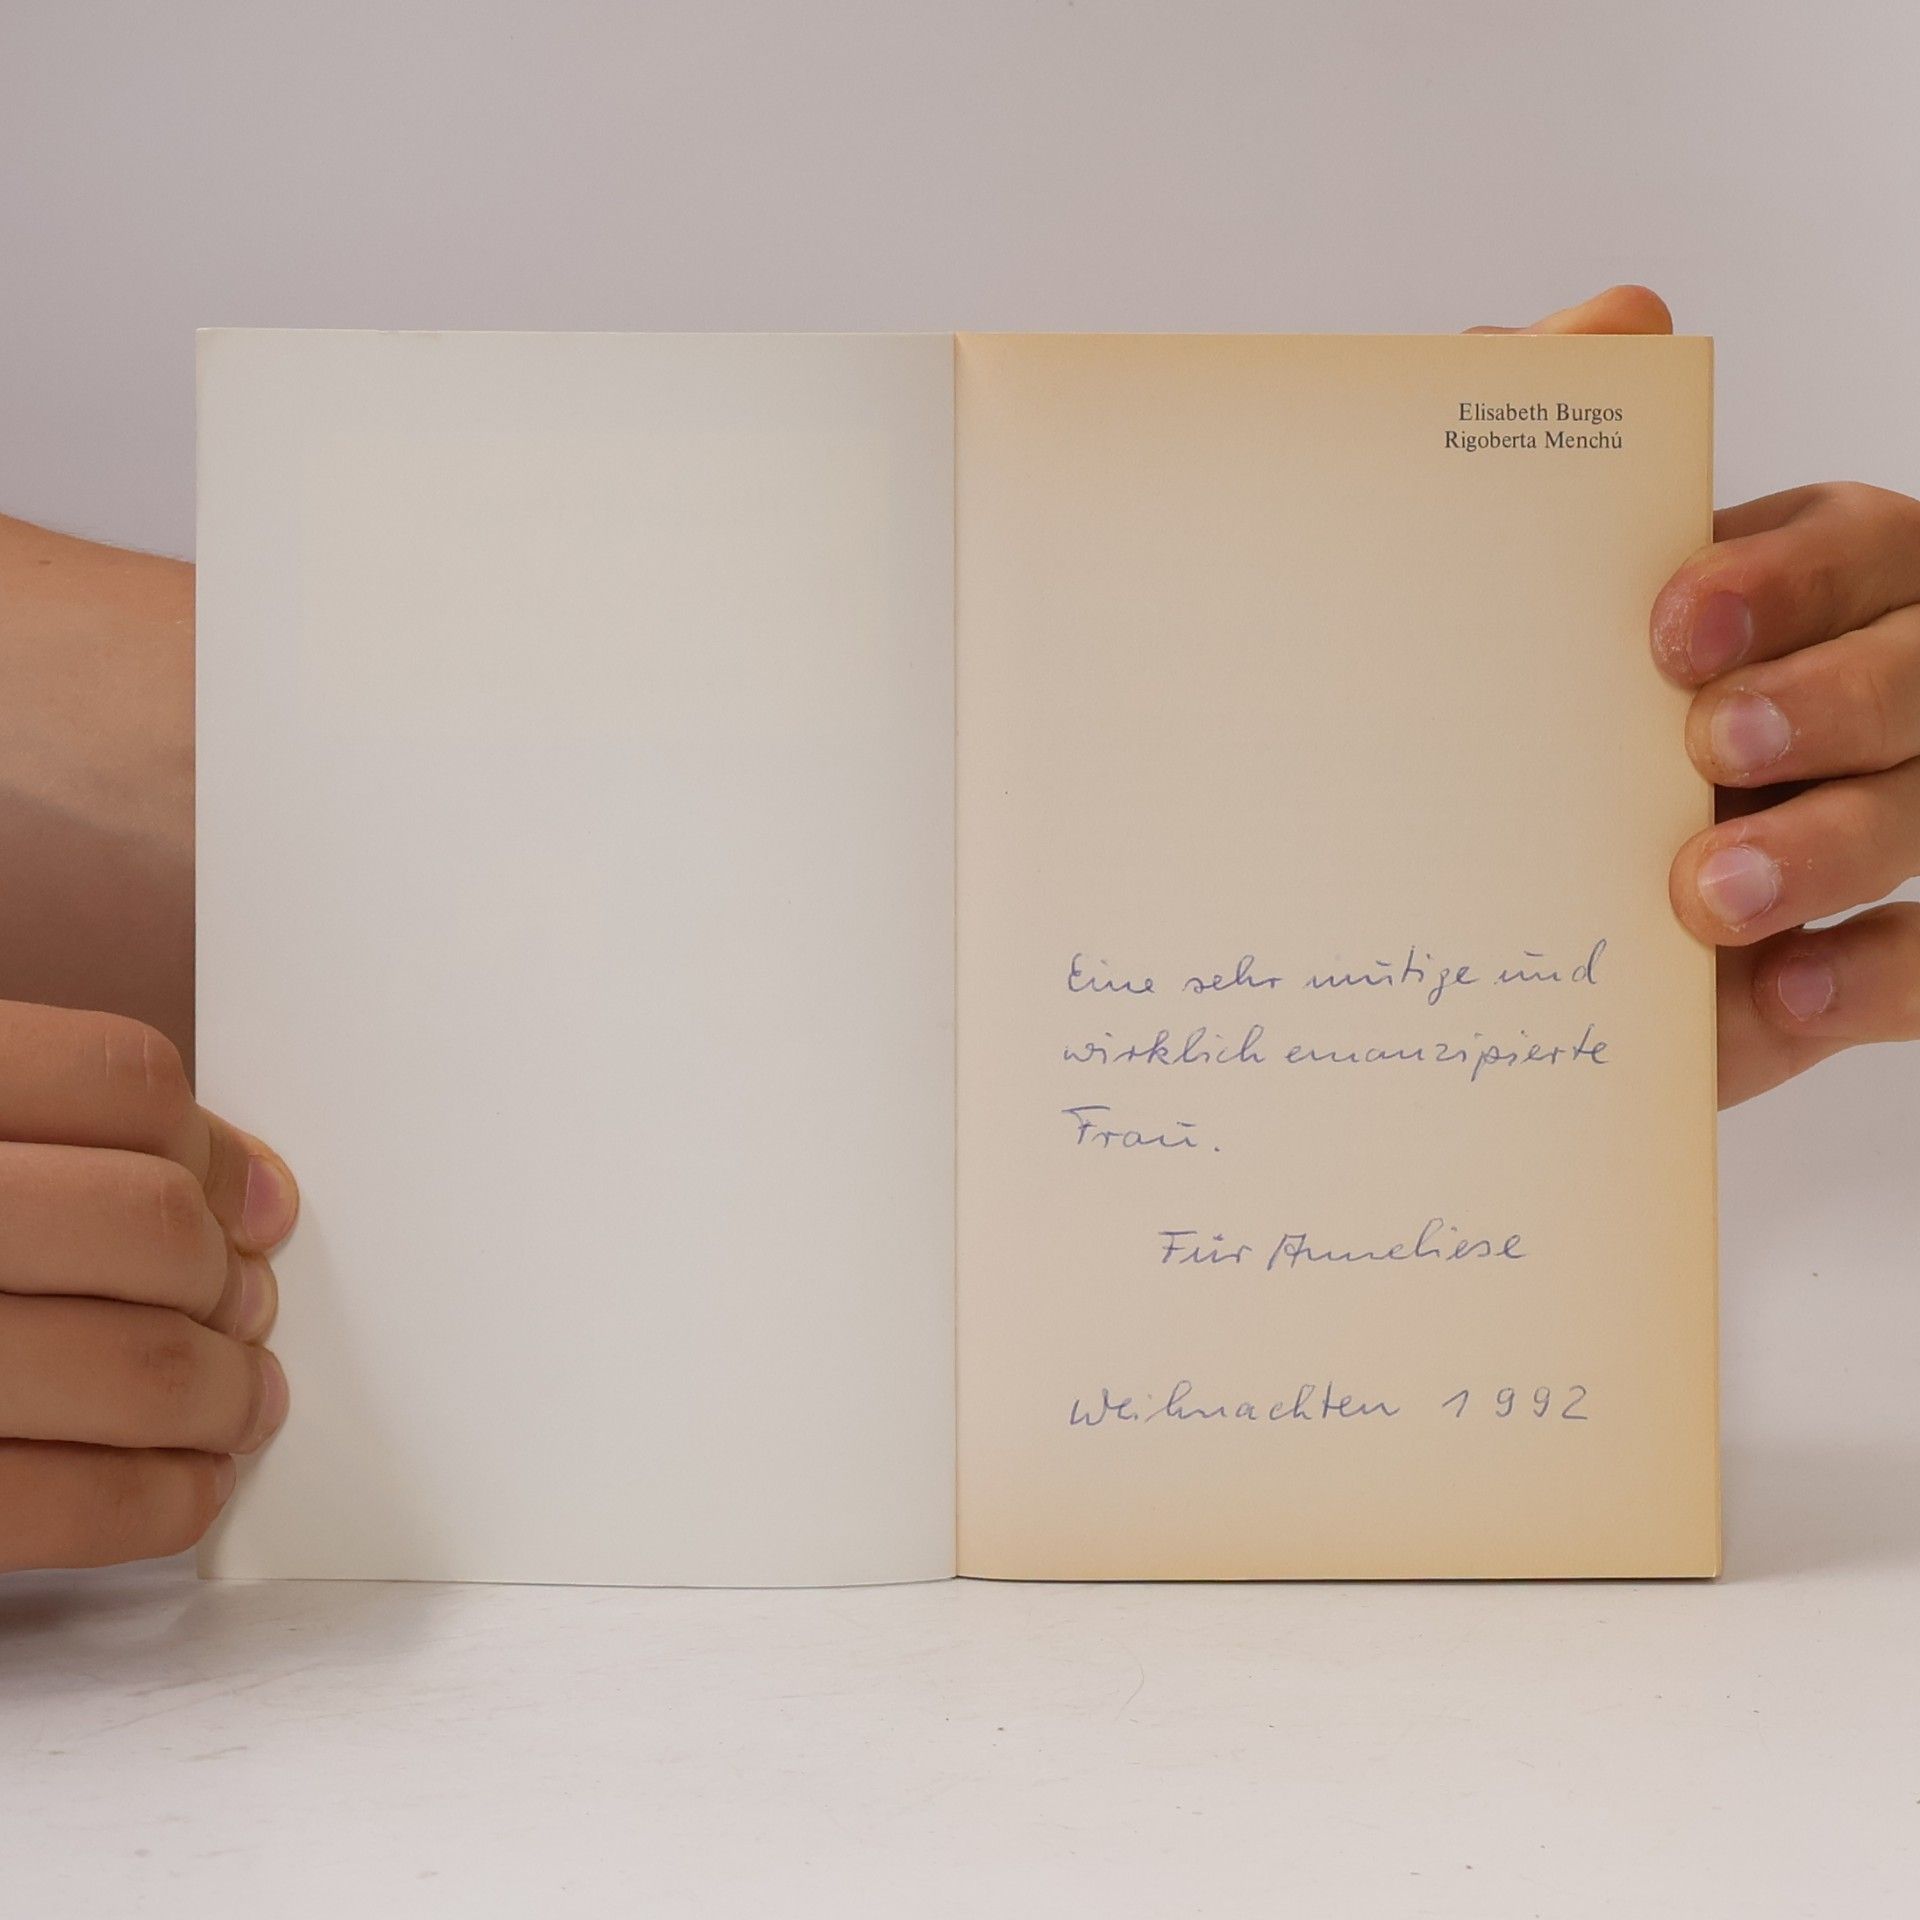 Elisabeth Burgos
Rigoberta Menchú
Eine sehr mutige und
wirklich emanzipierte
Frau.
Für Anneliese
Weihnachten 1992